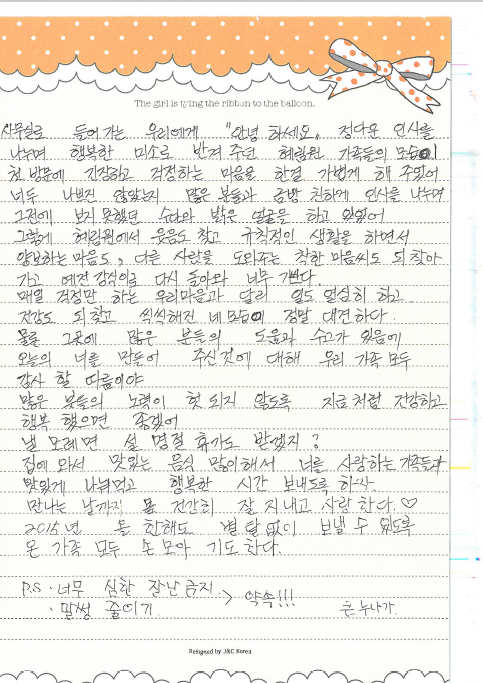 The girl is tying the ribbon to the balloon.
사무실로 들어가는 우리에게 "안녕 하세요" 정다운 인사를
나누며 행복한 미소로 반겨 주던 혜림원 가족들의 모습이
첫 방문에 긴장하고 걱정하는 마음을 한결 가볍게 해 주었어
너두 나쁘진 않았는지 많은 분들과 금방 친하게 인사를 나누며
그전에 보지 못했던 수다와 밝은 얼굴을 하고 있었어
그렇게 혜림원에서 웃음도 찾고 규칙적인 생활을 하면서
양보하는 마음도, 다른 사람을 도와주는 착한 마음씨도 되찾아
가고 예전 강식이로 다시 돌아와 너무 기쁘다.
매일 걱정만 하는 우리마음과 달리 일도 열심히 하고
건강도 되찾고 씩씩해진 네 모습이 정말 대견하다.
물론 그곳에 많은 분들의 도움과 수고가 있음에
오늘의 너를 만들어 주신것에 대해 우리 가족 모두
감사 할 따름이야
많은 분들의 노력이 헛 되지 않도록 지금처럼 건강하고
행복 했으면 좋겠어
낼 모레면 설 명절 휴가도 받겠지?
집에 와서 맛있는 음식 많이해서 너를 사랑하는 가족들과
맛있게 나눠먹고 행복한 시간 보내도록 하자.
만나는 날까지 몸 건강히 잘 지내고 사랑 한다.♡
2015년 올 한해도 별 탈 없이 보낼 수 있도록
온 가족 모두 손 모아 기도한다.
P.S · 너무 심한 장난금지 > 약속!!!
· 말썽 줄이기. 큰누나가.
Designed by J&C Korea